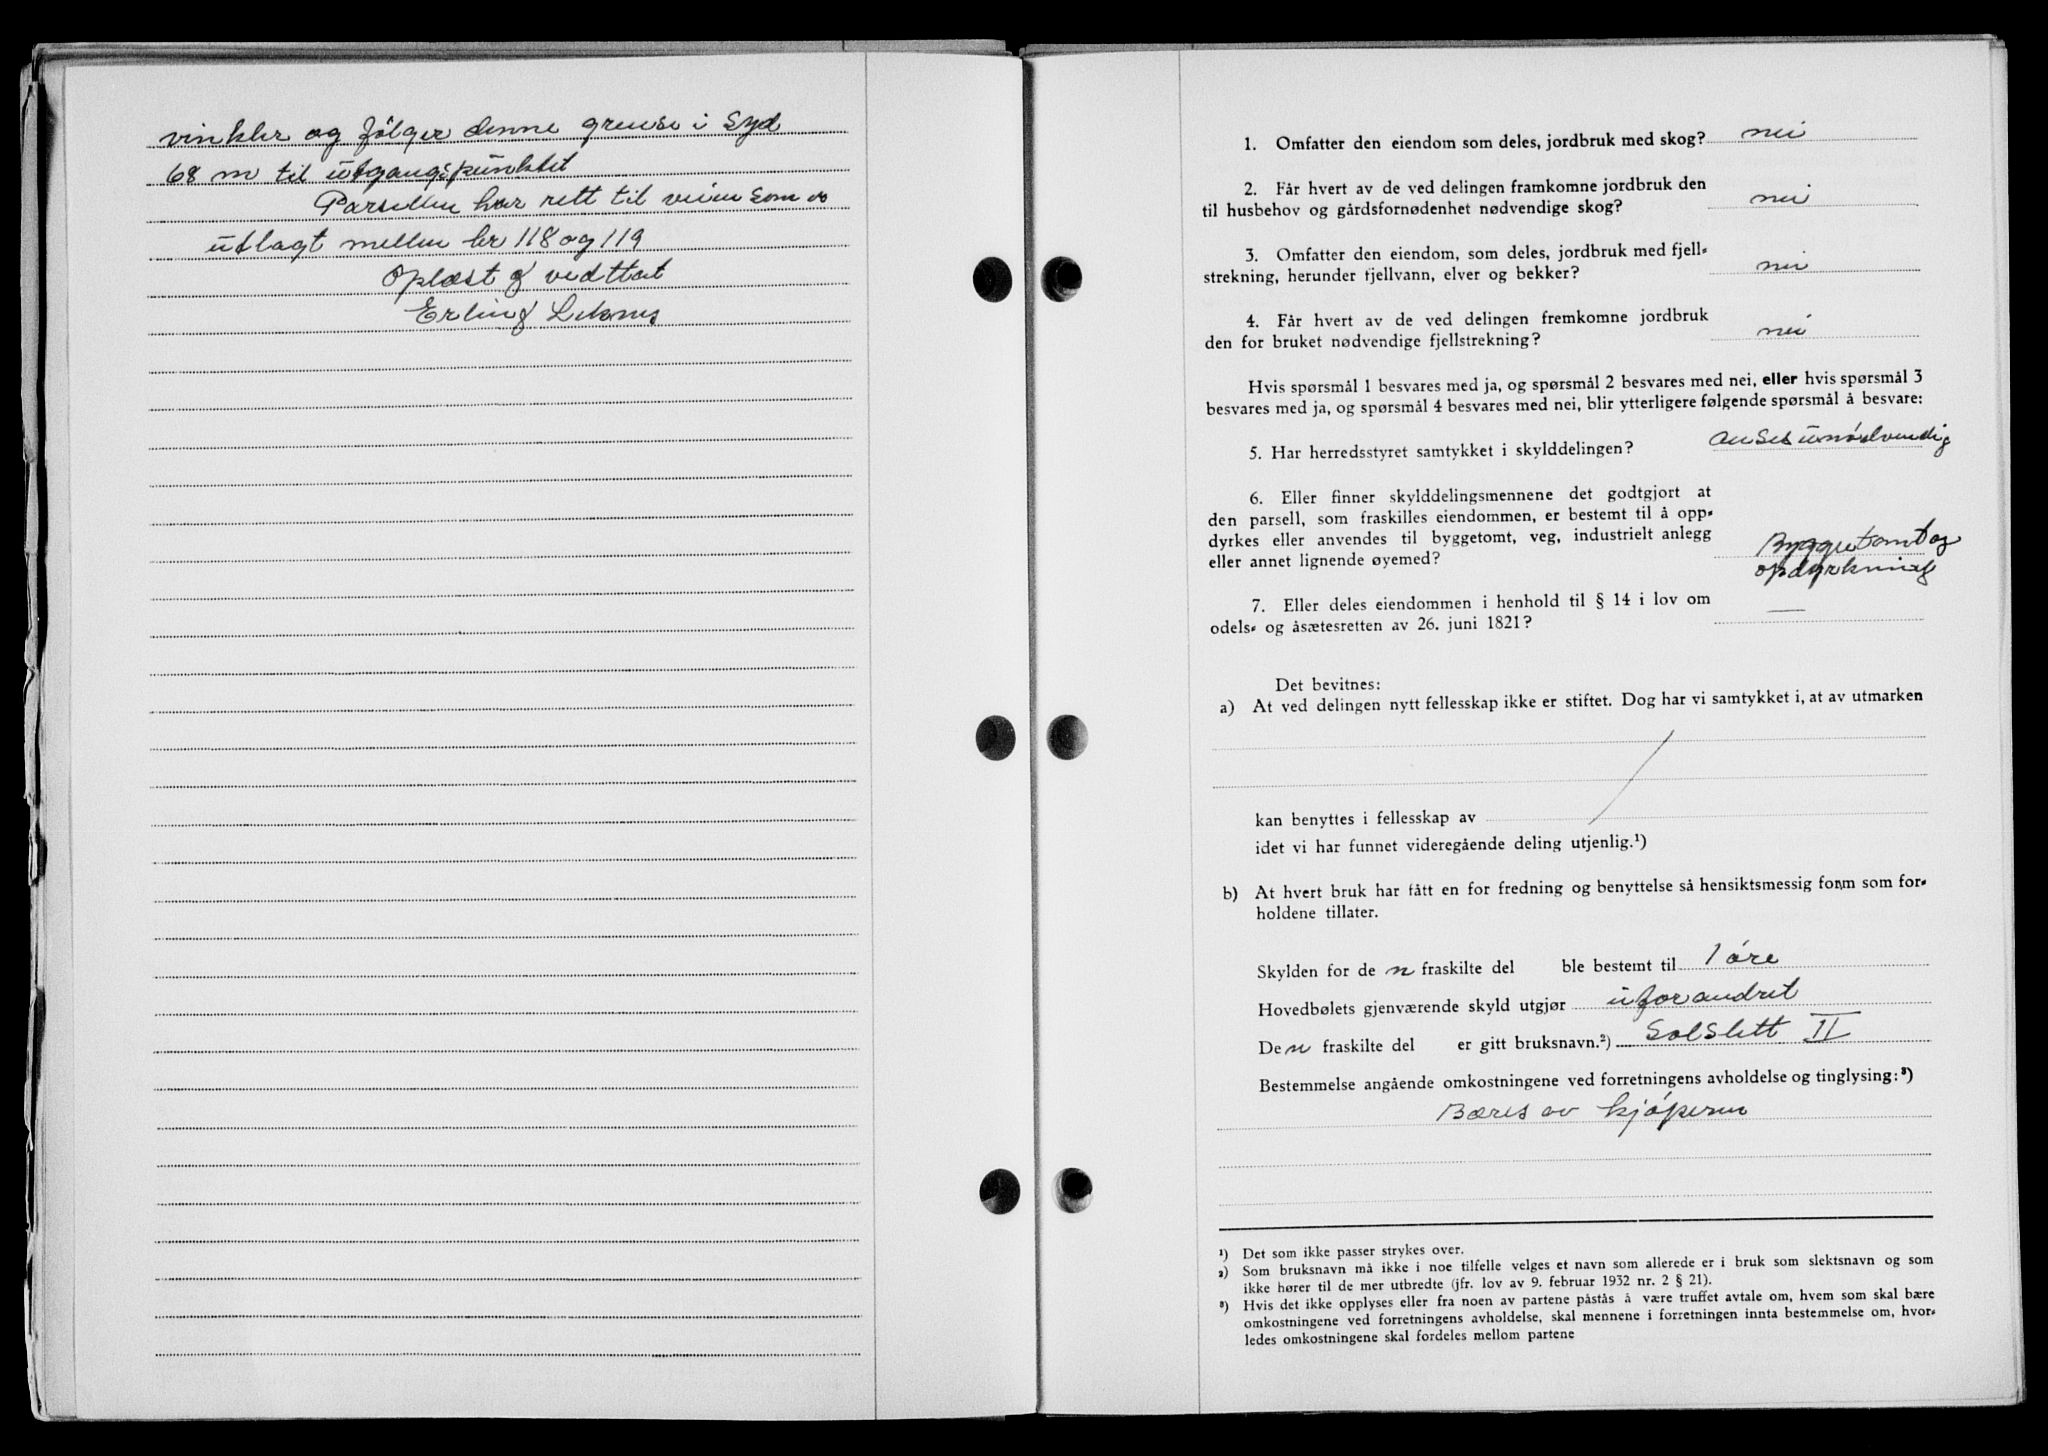 vinkler og følger denne grense i Syd
68 m til utgangspunktet
Parsellen har rett til veien som er
utlagt mellem br 118 og 119
Oplæst og vedttat
Erling
1. Omfatter den eiendom som deles, jordbruk med skog? nei
2. Får hvert av de ved delingen framkomne jordbruk den
til husbehov og gårdsfornødenhet nødvendige skog? nei
3. Omfatter den eiendom, som deles, jordbruk med fjell-
strekning, herunder fjellvann, elver og bekker? nei
4. Får hvert av de ved delingen fremkomne jordbruk
den for bruket nødvendige fjellstrekning? nei
Hvis spørsmål 1 besvares med ja, og spørsmål 2 besvares med nei, eller hvis spørsmål 3
besvares med ja, og spørsmål 4 besvares med nei, blir ytterligere følgende spørsmål å besvare:
5. Har herredsstyret samtykket i skylddelingen? anses unødvendig
6. Eller finner skylddelingsmennene det godtgjort at
den parsell, som fraskilles eiendommen, er bestemt til å opp-
dyrkes eller anvendes til byggetomt, veg, industrielt anlegg
eller annet lignende øyemed? Byggetomt og
opdyrkning
7. Eller deles eiendommen i henhold til § 14 i lov om
odels- og åsætesretten av 26. juni 1821? —
Det bevitnes:
a) At ved delingen nytt fellesskap ikke er stiftet. Dog har vi samtykket i, at av utmarken
kan benyttes i fellesskap av
idet vi har funnet videregående deling utjenlig.¹)
b) At hvert bruk har fått en for fredning og benyttelse så hensiktsmessig form som for-
holdene tillater.
Skylden for de n fraskilte del ble bestemt til 1 øre
Hovedbølets gjenværende skyld utgjør uforandret
De n fraskilte del er gitt bruksnavn.²) Solslett II
Bestemmelse angående omkostningene ved forretningens avholdelse og tinglysing:³)
Bæres av kjøperen
¹) Det som ikke passer strykes over.
²) Som bruksnavn må ikke i noe tilfelle velges et navn som allerede er i bruk som slektsnavn og som
ikke hører til de mer utbredte (jfr. lov av 9. februar 1932 nr. 2 § 21).
³) Hvis det ikke opplyses eller fra noen av partene påstås å være truffet avtale om, hvem som skal bære
omkostningene ved forretningens avholdelse, skal mennene i forretningen innta bestemmelse om, hvor-
ledes omkostningene skal fordeles mellom partene